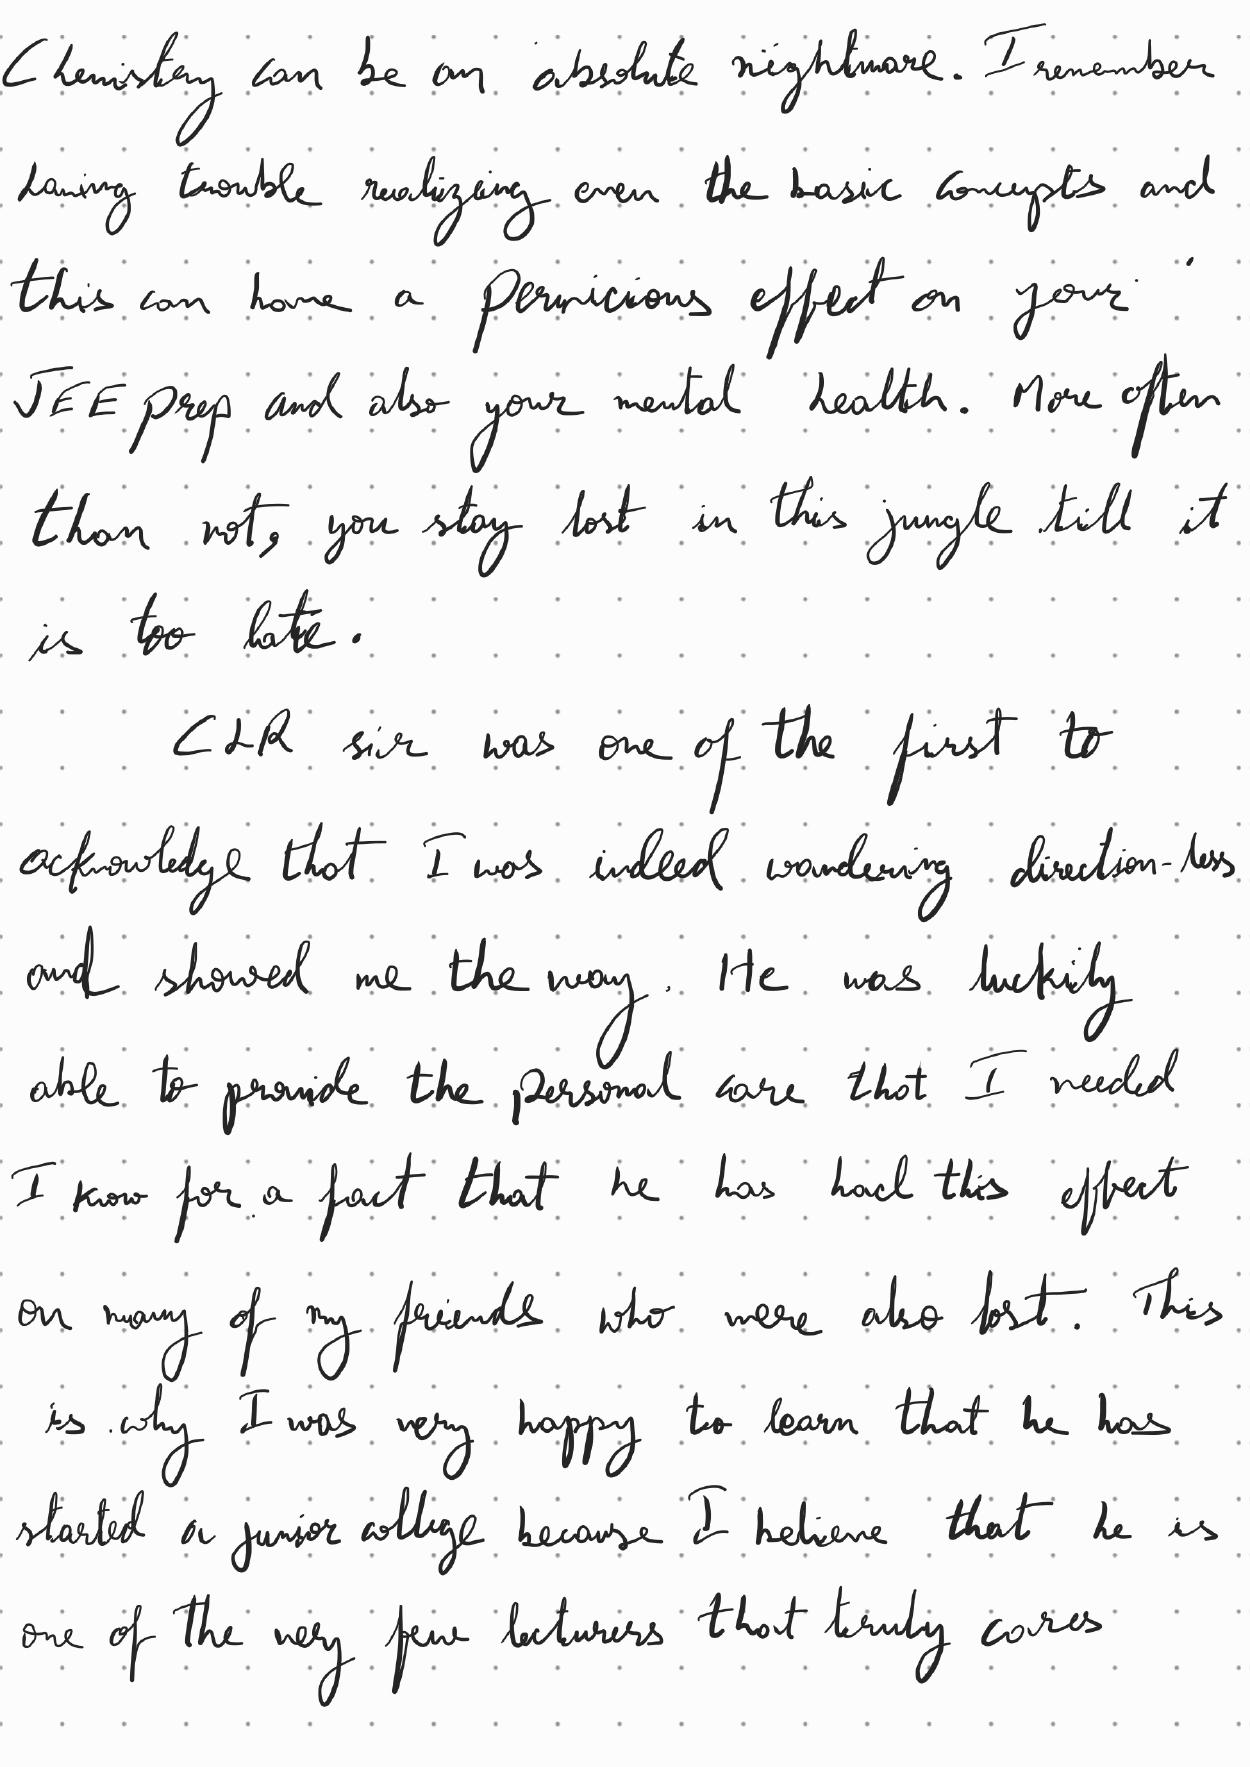 Chemistry can be an absolute nightmare. I remember
having trouble realizing even the basic concepts and
this can have a pernicious effect on your
JEE prep and also your mental health. More often
than not, you stay lost in this jungle till it
is too late.
CLR sir was one of the first to
acknowledge that I was indeed wandering direction-less
and showed me the way. He was luckily
able to provide the personal care that I needed
I know for a fact that he has had this effect
on many of my friends who were also lost. This
is why I was very happy to learn that he has
started a junior college because I believe that he is
one of the very few lecturers that truly cares